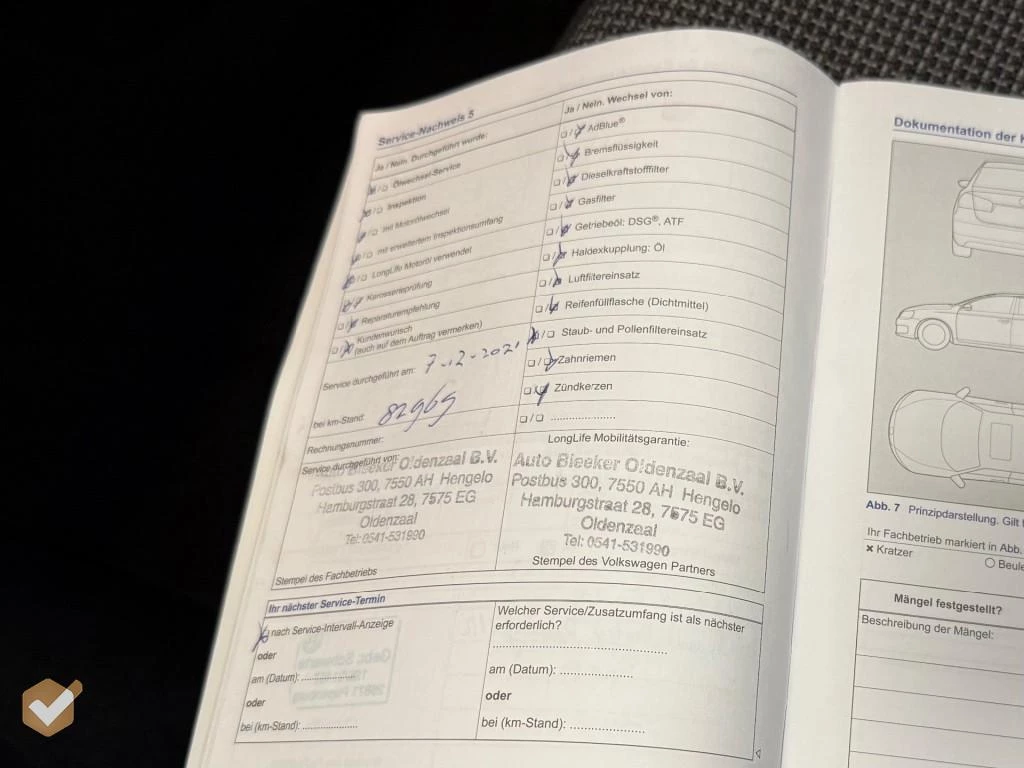 Service-Nachweis 5
Ja / Nein. Durchgeführt wurde:
Ölwechsel-Service
Inspektion
mit Motorölwechsel
mit erweitertem Inspektionsumfang
LongLife Motoröl verwendet
Karosserieprüfung
Reparaturempfehlung
Kundenwunsch
(auch auf dem Auftrag vermerken)
Service durchgeführt am: 7-12-2021
bei km-Stand: 82969
Rechnungsnummer:
Service durchgeführt von:
Auto Bleeker Oldenzaal B.V.
Postbus 300, 7550 AH Hengelo
Hamburgstraat 28, 7575 EG
Oldenzaal
Tel: 0541-531990
Stempel des Fachbetriebs
Ja / Nein. Wechsel von:
AdBlue®
Bremsflüssigkeit
Dieselkraftstofffilter
Gasfilter
Getriebeöl: DSG®, ATF
Haldexkupplung: Öl
Luftfiltereinsatz
Reifenfüllflasche (Dichtmittel)
Staub- und Pollenfiltereinsatz
Zahnriemen
Zündkerzen
LongLife Mobilitätsgarantie:
Auto Bleeker Oldenzaal B.V.
Postbus 300, 7550 AH Hengelo
Hamburgstraat 28, 7575 EG
Oldenzaal
Tel: 0541-531990
Stempel des Volkswagen Partners
Ihr nächster Service-Termin
nach Service-Intervall-Anzeige
oder
am (Datum):
oder
bei (km-Stand):
Welcher Service/Zusatzumfang ist als nächster
erforderlich?
am (Datum):
oder
bei (km-Stand):
Dokumentation der
Abb. 7 Prinzipdarstellung. Gilt
Ihr Fachbetrieb markiert in Abb.
× Kratzer
Mängel festgestellt?
Beschreibung der Mängel: